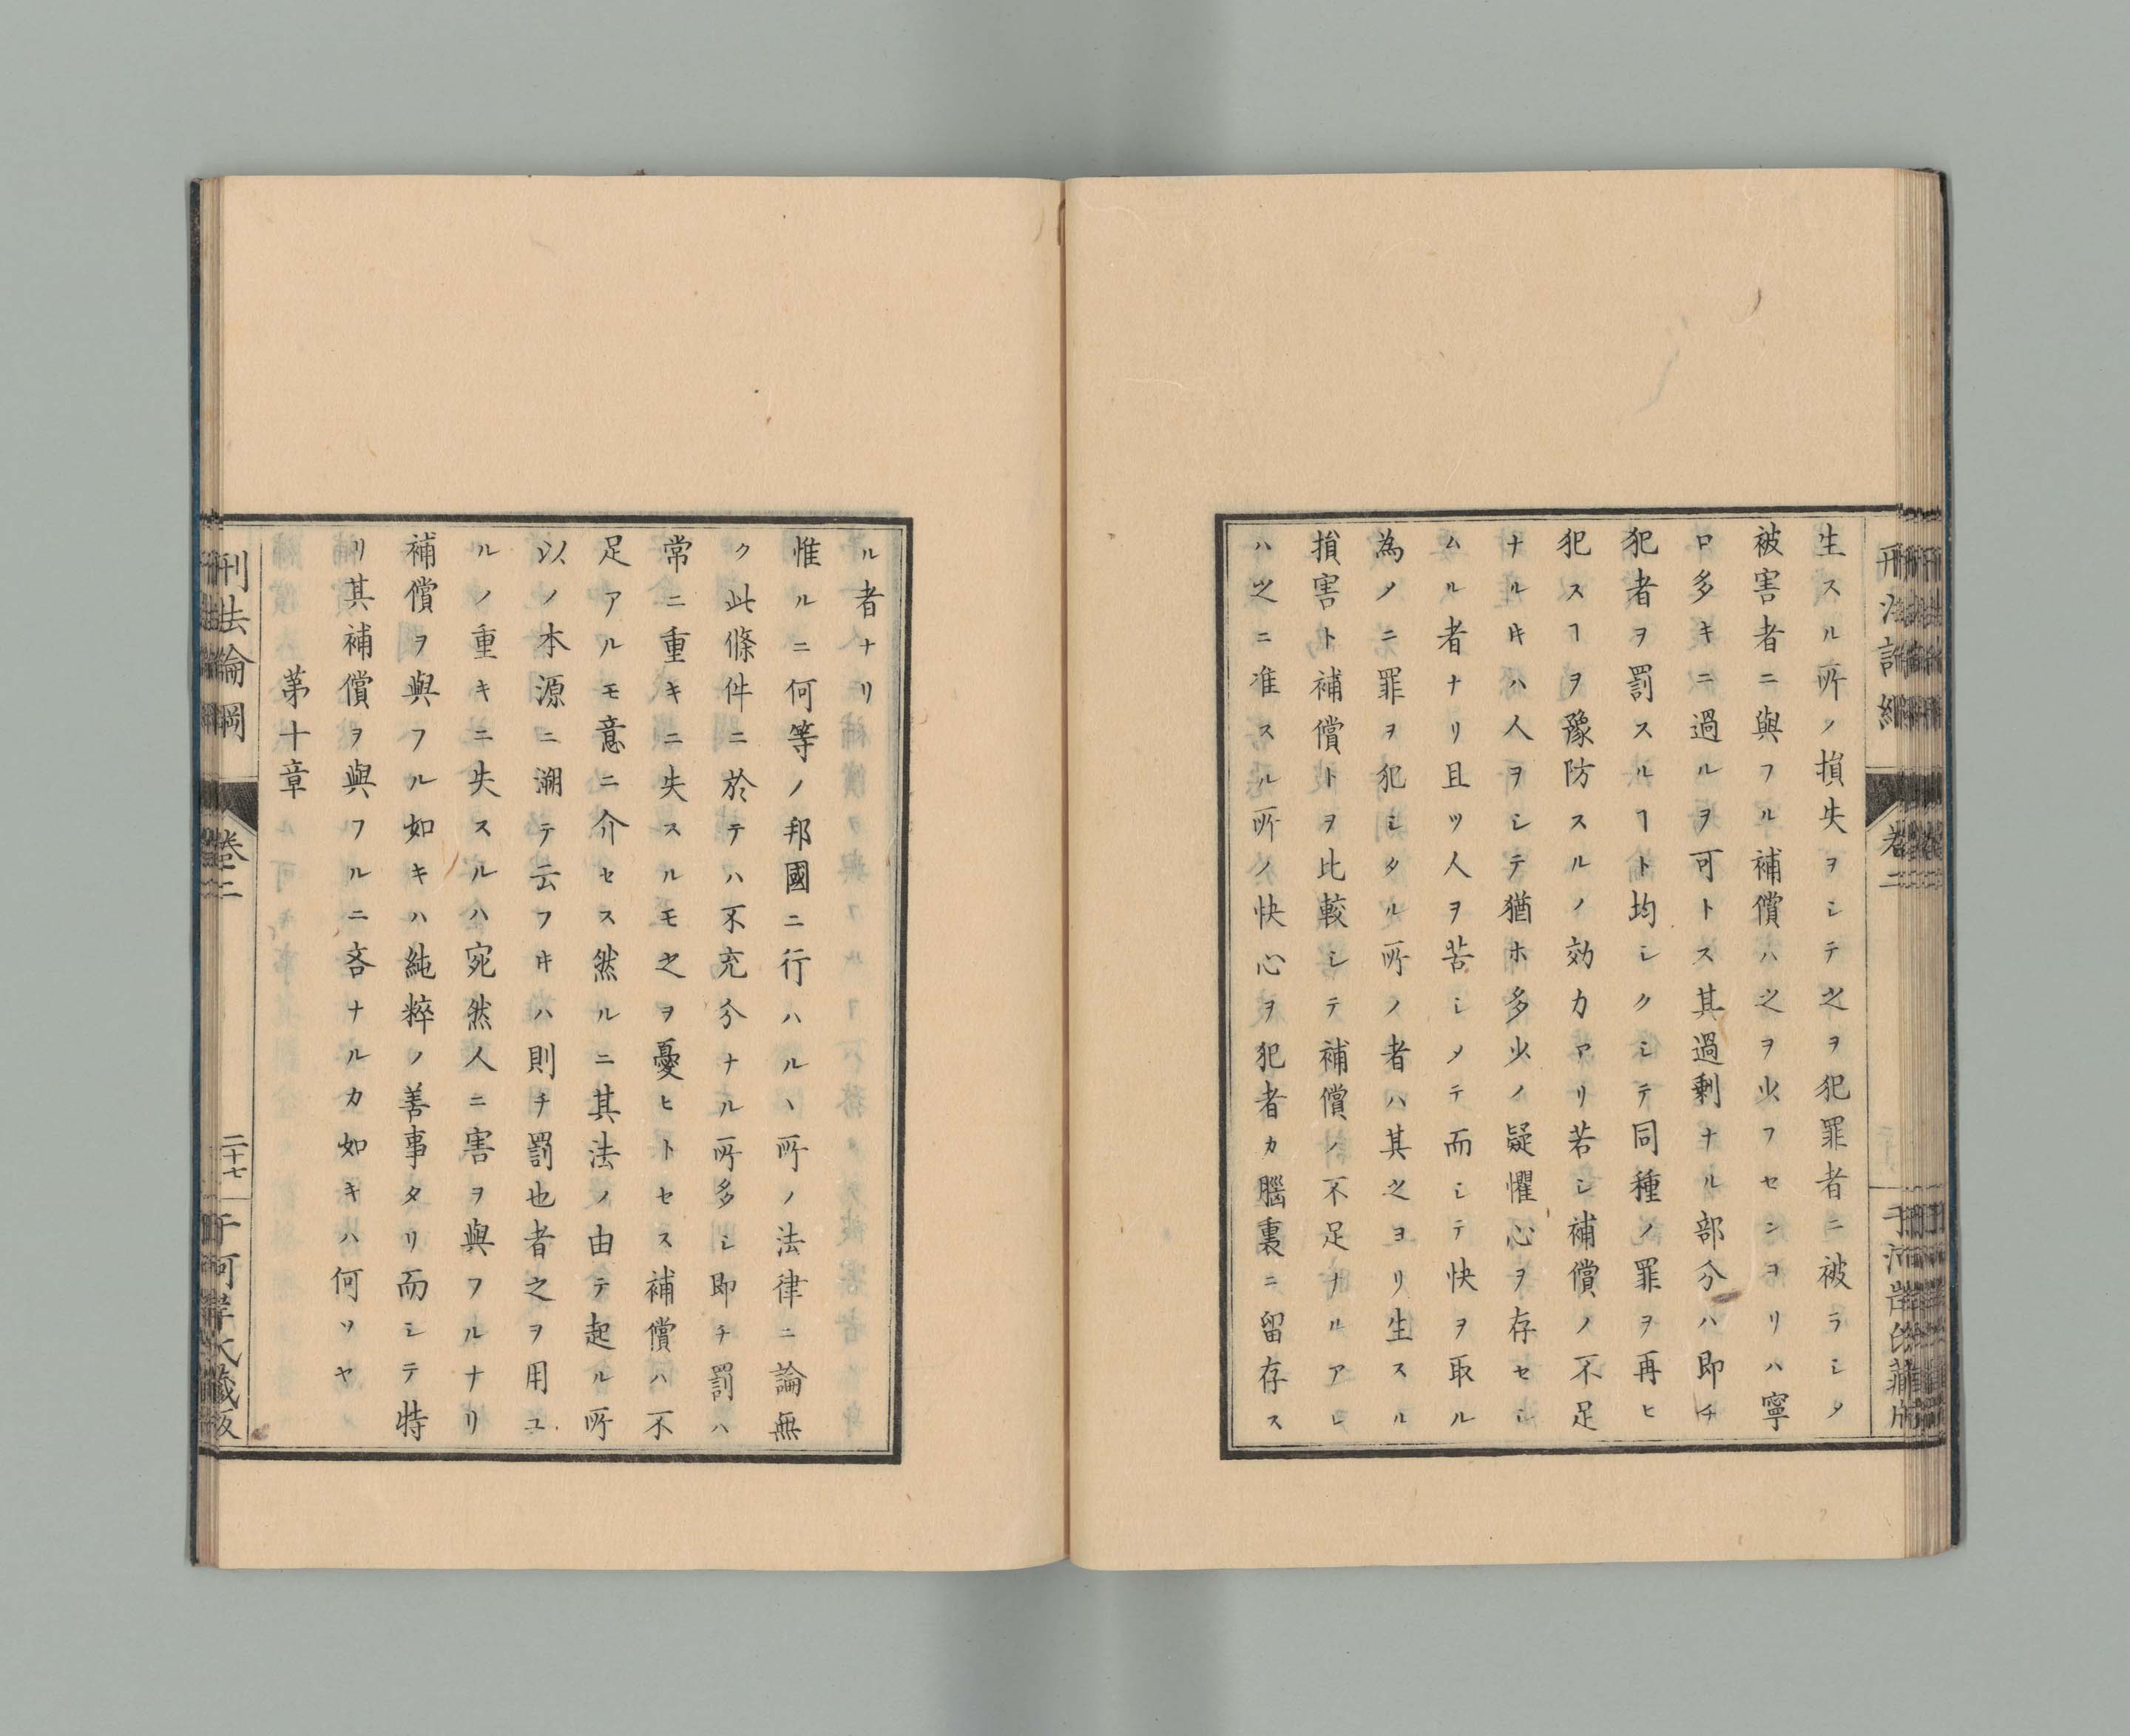 生スル所ノ損失ヲシテ之ヲ犯罪者ニ被ラシタ
被害者ニ與フル補償ハ之ヲ少フセンヨリハ寧
ロ多キニ過ルヲ可トス其過剰ナル部分ハ即チ
犯者ヲ罰スルヿト均シクシテ同種ノ罪ヲ再ヒ
犯スヿヲ豫防スルノ効力アリ若シ補償ノ不足
ナルキハ人ヲシテ猶ホ多少ノ疑懼心ヲ存セシ
ムル者ナリ且ツ人ヲ苦シメテ而シテ快ヲ取ル
為メニ罪ヲ犯シタル所ノ者ハ其之ヨリ生スル
損害ト補償トヲ比較シテ補償ノ不足ナルアレ
ハ之ニ准スル所ノ快心ヲ犯者カ腦裏ニ留存ス
ル者ナリ
惟ルニ何等ノ邦國ニ行ハルヽ所ノ法律ニ論無
ク此條件ニ於テハ不充分ナル所多シ即チ罰ハ
常ニ重キニ失スルモ之ヲ憂ヒトセス補償ハ不
足アルモ意ニ介セス然ルニ其法ノ由テ起ル所
以ノ本源ニ溯テ云フキハ則チ罰也者之ヲ用ユ
ルノ重キニ失スルハ宛然人ニ害ヲ與フルナリ
補償ヲ與フル如キハ純粹ノ善事タリ而シテ特
リ其補償ヲ與フルニ吝ナルカ如キハ何ソヤ
第十章
刑法論綱
卷二
二十七
千河岸氏藏版